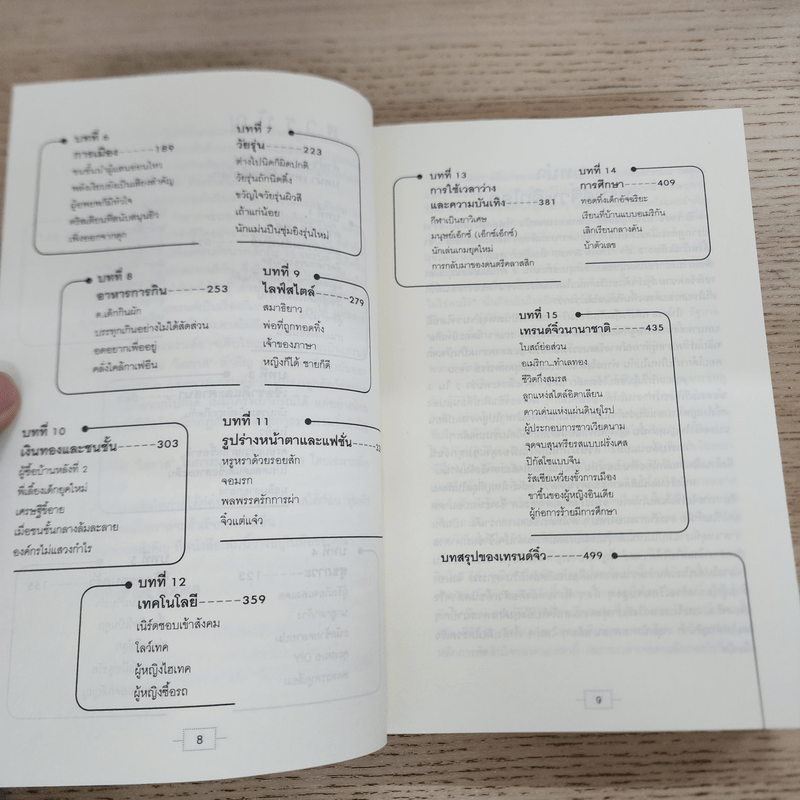 บทที่ 6
การเมือง-----189
ชนชั้นนำผู้แสนอ่อนไหว
พลังเงียบยังเป็นเสียงสำคัญ
ผู้อพยพก็มีหัวใจ
คริสเตียนที่สนับสนุนยิว
เพิ่งออกจากคุก
บทที่ 7
วัยรุ่น-----223
ต่างไปนิดก็ผิดปกติ
วัยรุ่นถักนิตติ้ง
ขวัญใจวัยรุ่นผิวสี
เถ้าแก่น้อย
นักแม่นปืนซุ่มยิงรุ่นใหม่
บทที่ 8
อาหารการกิน-----253
ด.เด็กกินผัก
บรรทุกเกินอย่างไม่ได้สัดส่วน
อดอยากเพื่ออยู่
คลั่งไคล้กาเฟอีน
บทที่ 9
ไลฟ์สไตล์-----279
สมาธิยาว
พ่อที่ถูกทอดทิ้ง
เจ้าของภาษา
หญิงก็ได้ ชายก็ดี
บทที่ 10
เงินทองและชนชั้น-----303
ผู้ซื้อบ้านหลังที่ 2
พี่เลี้ยงเด็กยุคใหม่
เศรษฐีขี้อาย
เมื่อชนชั้นกลางล้มละลาย
องค์กรไม่แสวงกำไร
บทที่ 11
รูปร่างหน้าตาและแฟชั่น-----
หรูหราด้วยรอยสัก
จอมรก
พลพรรครักการผ่า
จิ๋วแต่แจ๋ว
บทที่ 12
เทคโนโลยี-----359
เนิร์ดชอบเข้าสังคม
โลว์เทค
ผู้หญิงไฮเทค
ผู้หญิงซื้อรถ
8
บทที่ 13
การใช้เวลาว่าง
และความบันเทิง-----381
กีฬาเป็นยาวิเศษ
มนุษย์เอ็กซ์ (เอ็กซ์เอ็กซ์)
นักเล่นเกมยุคใหม่
การกลับมาของดนตรีคลาสสิก
บทที่ 14
การศึกษา-----409
ทอดทิ้งเด็กอัจฉริยะ
เรียนที่บ้านแบบอเมริกัน
เลิกเรียนกลางคัน
บ้าตัวเลข
บทที่ 15
เทรนด์จิ๋วนานาชาติ-----435
โบสถ์ย่อส่วน
อเมริกา...ทำเลทอง
ชีวิตกึ่งสมรส
ลูกแหง่สไตล์อิตาเลียน
ดาวเด่นแห่งแผ่นดินยุโรป
ผู้ประกอบการชาวเวียดนาม
จุดจบสุนทรียรสแบบฝรั่งเศส
ปิกัสโซแบบจีน
รัสเซียเหวี่ยงขั้วการเมือง
ขาขึ้นของผู้หญิงอินเดีย
ผู้ก่อการร้ายมีการศึกษา
บทสรุปของเทรนด์จิ๋ว-----499
9